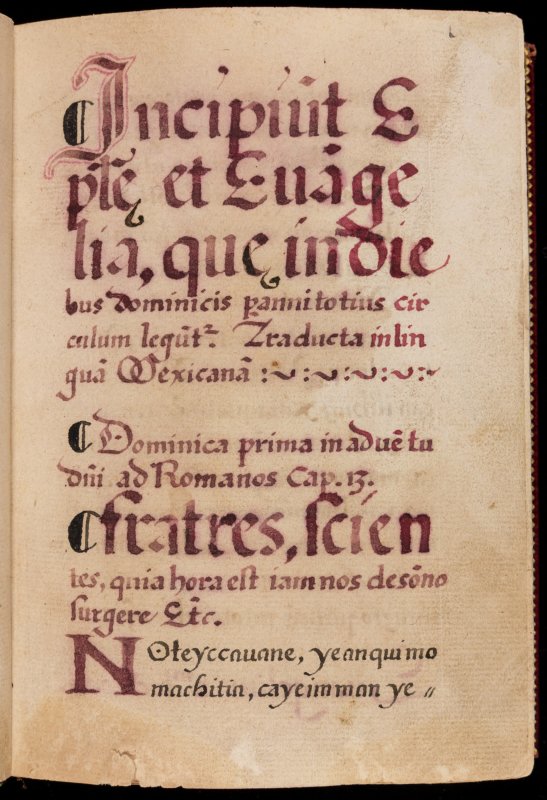 ¶ Incipiūt E
pl̃ę et Euāge
lia, quę in die
bus dominicis p anni totius cir
culum legũtꝛ. Traducta in lin
guā Mexicanā :~:~:~:~
¶ Dominica prima in aduẽtu
dñi ad Romanos Cap. 13.
¶ fratres, scien
tes, quia hora est iam nos de sõno
surgere Etc.
Noteyccauane, ye anqui mo
machitia, ca ye imman ye //